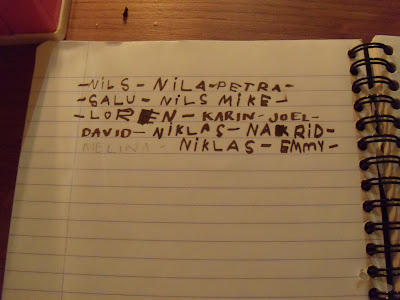 -NILS- NILA-PETRA-
-SALU- NILS MIKE-
-LOREN- KARIN- JOEL-
DAVID- NIKLAS- NAKRID-
MELINA- NIKLAS- EMMY-